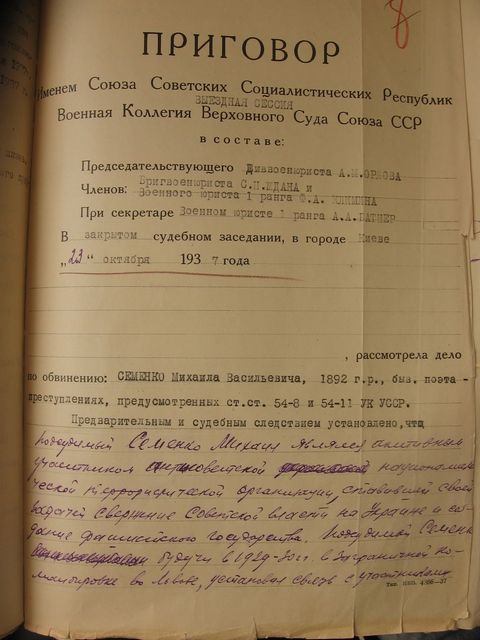 8
ПРИГОВОР
Именем Союза Советских Социалистических Республик
ВЫЕЗДНАЯ СЕССИЯ
Военная Коллегия Верховного Суда Союза ССР
в составе:
Председательствующего Диввоенюриста А.М.ОРЛОВА
Членов: Бригвоенюриста С.Н.ЖДАНА и
Военного юриста 1 ранга Ф.А. КЛИМИНА
При секретаре Военном юристе 1 ранга А.А.БАТНЕР
В закрытом судебном заседании, в городе Киеве
„23“ октября 1937 года
, рассмотрела дело
по обвинению: СЕМЕНКО Михаила Васильевича, 1892 г.р., быв. поэта -
преступлениях, предусмотренных ст.ст. 54-8 и 54-11 УК УССР.
Предварительным и судебным следствием установлено, что
подсудимый Семенко Михаил являлся активным
участником антисоветской националисти-
ческой террористической организации, ставившей своей
задачей свержение Советской власти на Украине и соз-
дание фашистского государства. Подсудимый Семенко
будучи в 1929 году в заграничной ко-
мандировке во Львове, установил связь с участниками